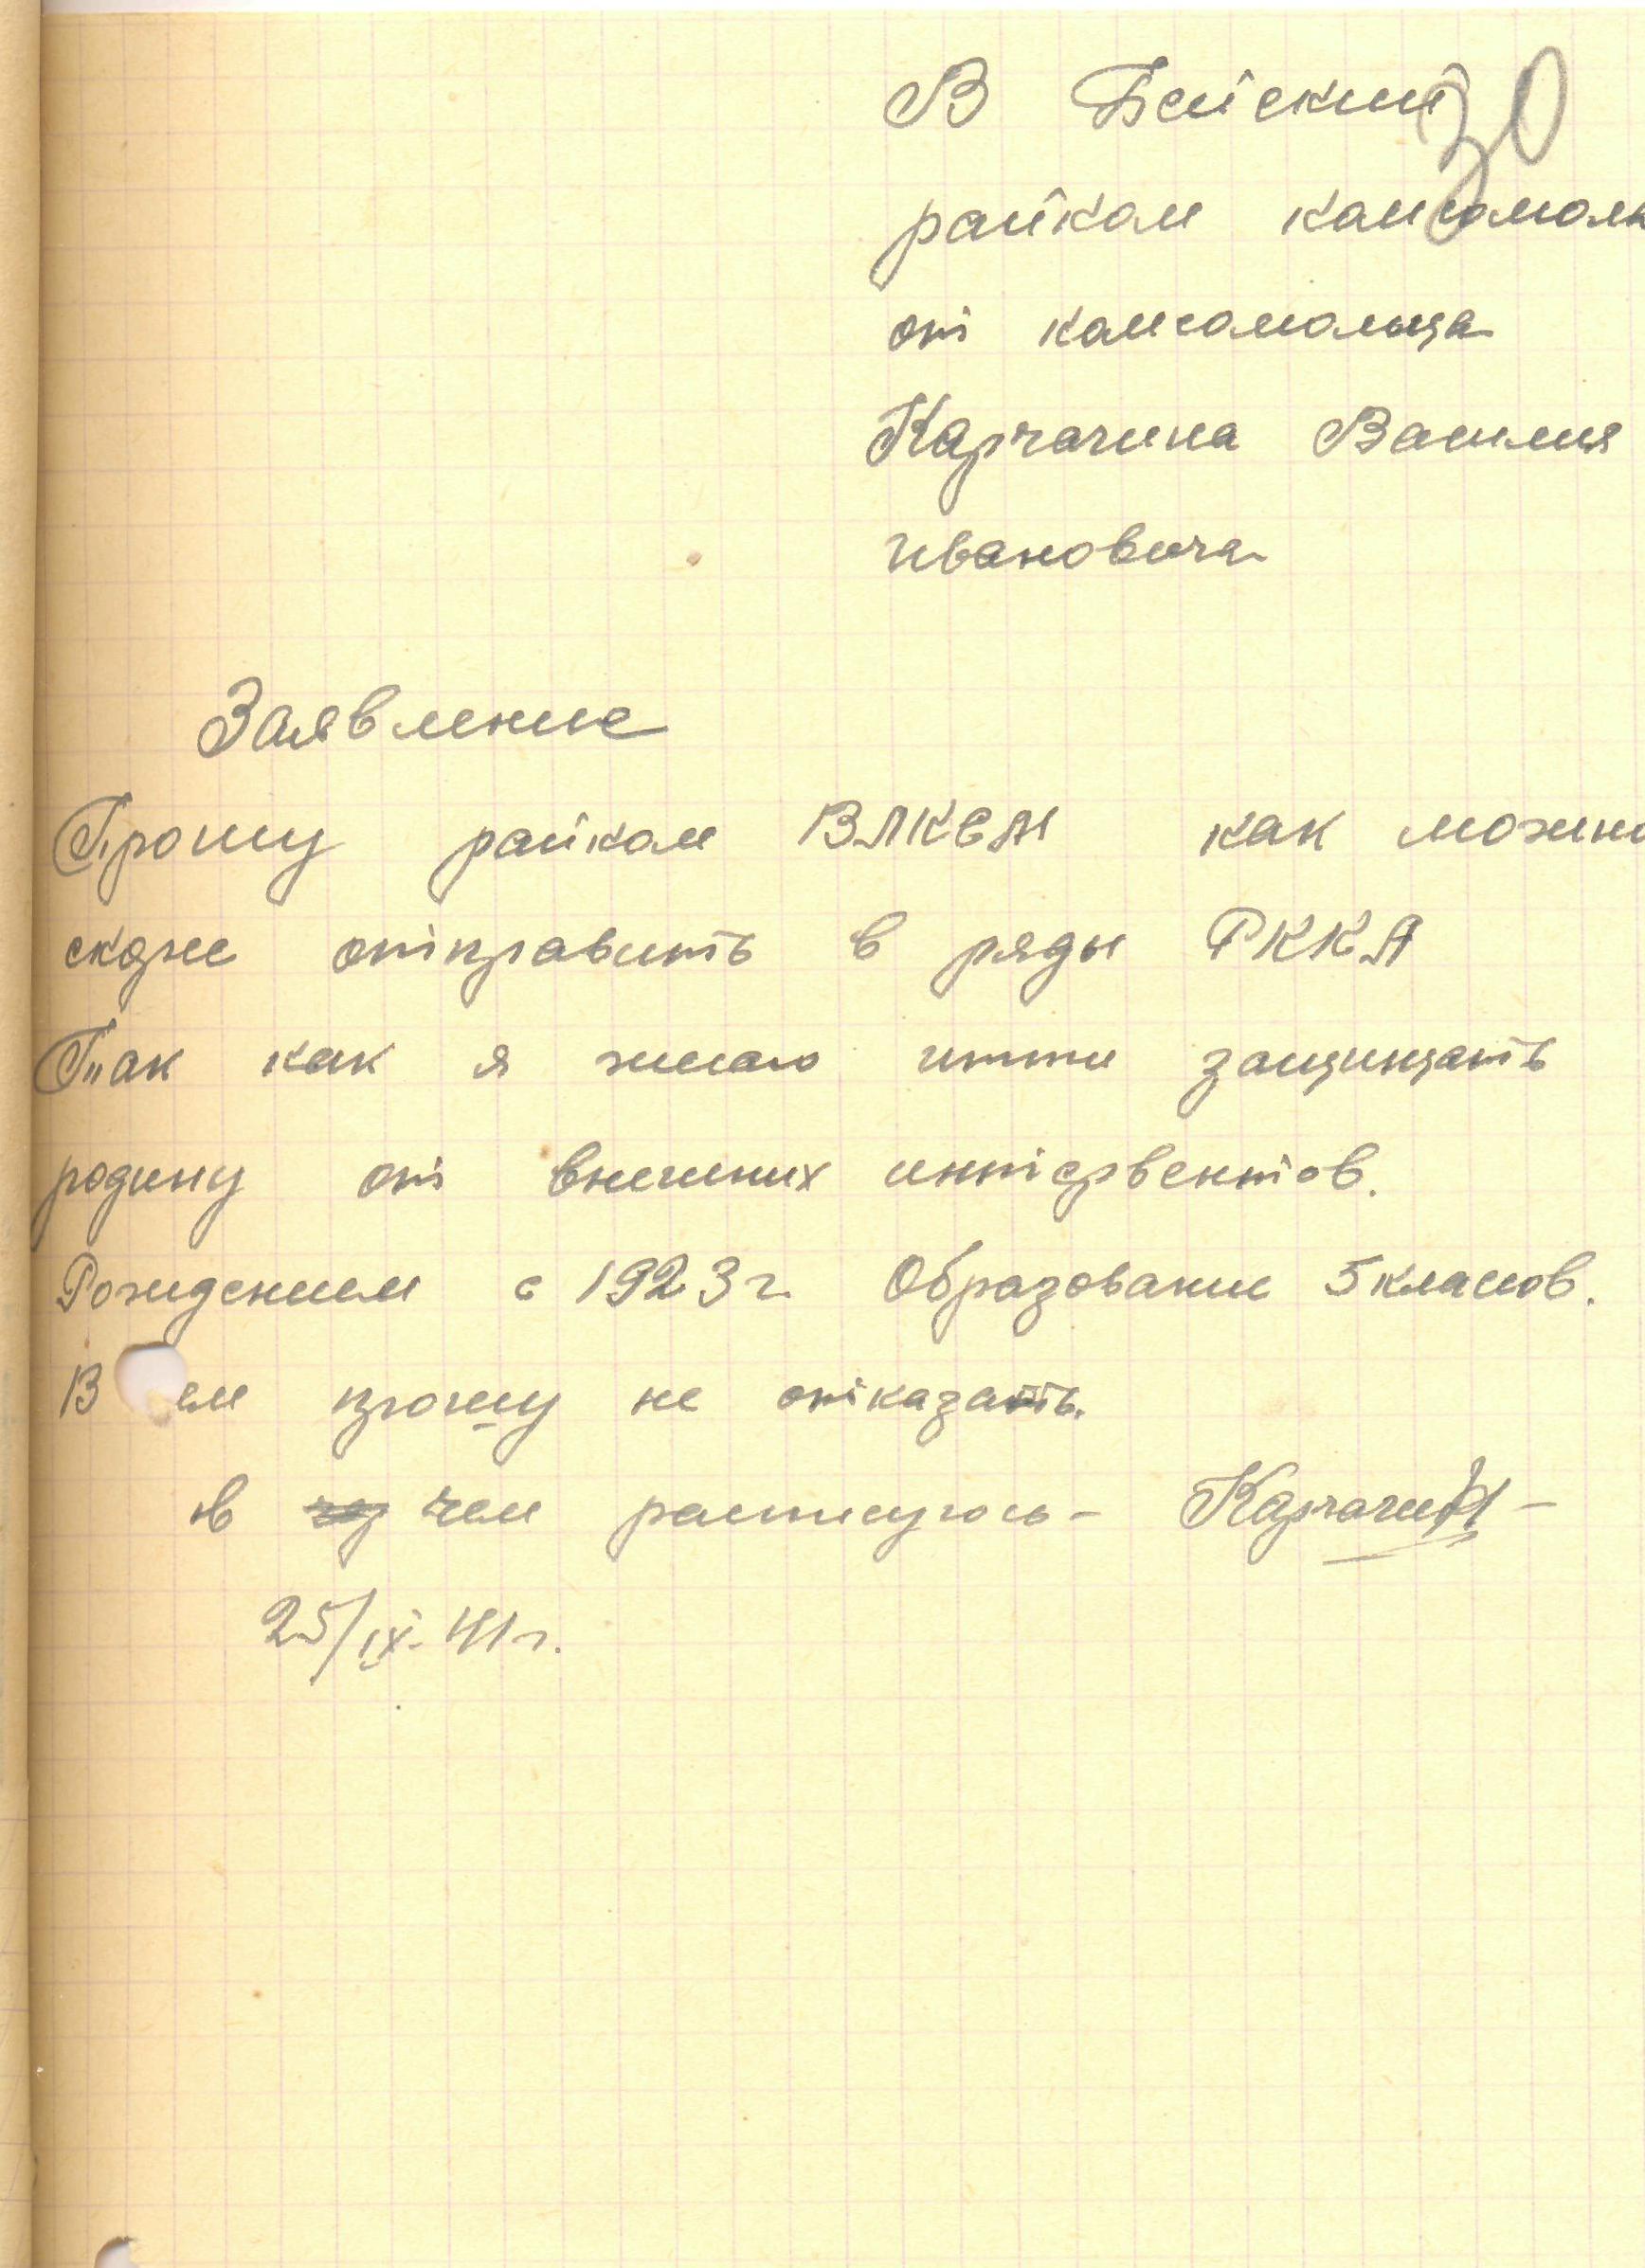 В Бейский
30
райком комсомола
от комсомольца
Карчагина Василия
ивановича
Заявление
Прошу райком ВЛКСМ как можно
скорее отправить в ряды РККА
Так как я желаю итти защищать
родину от внешних интервентов.
Рождением с 1923 г. Образование 5 класов.
В ем прошу не отказать.
в чем распишуюсь – Карчагин –
25/IX-41 г.